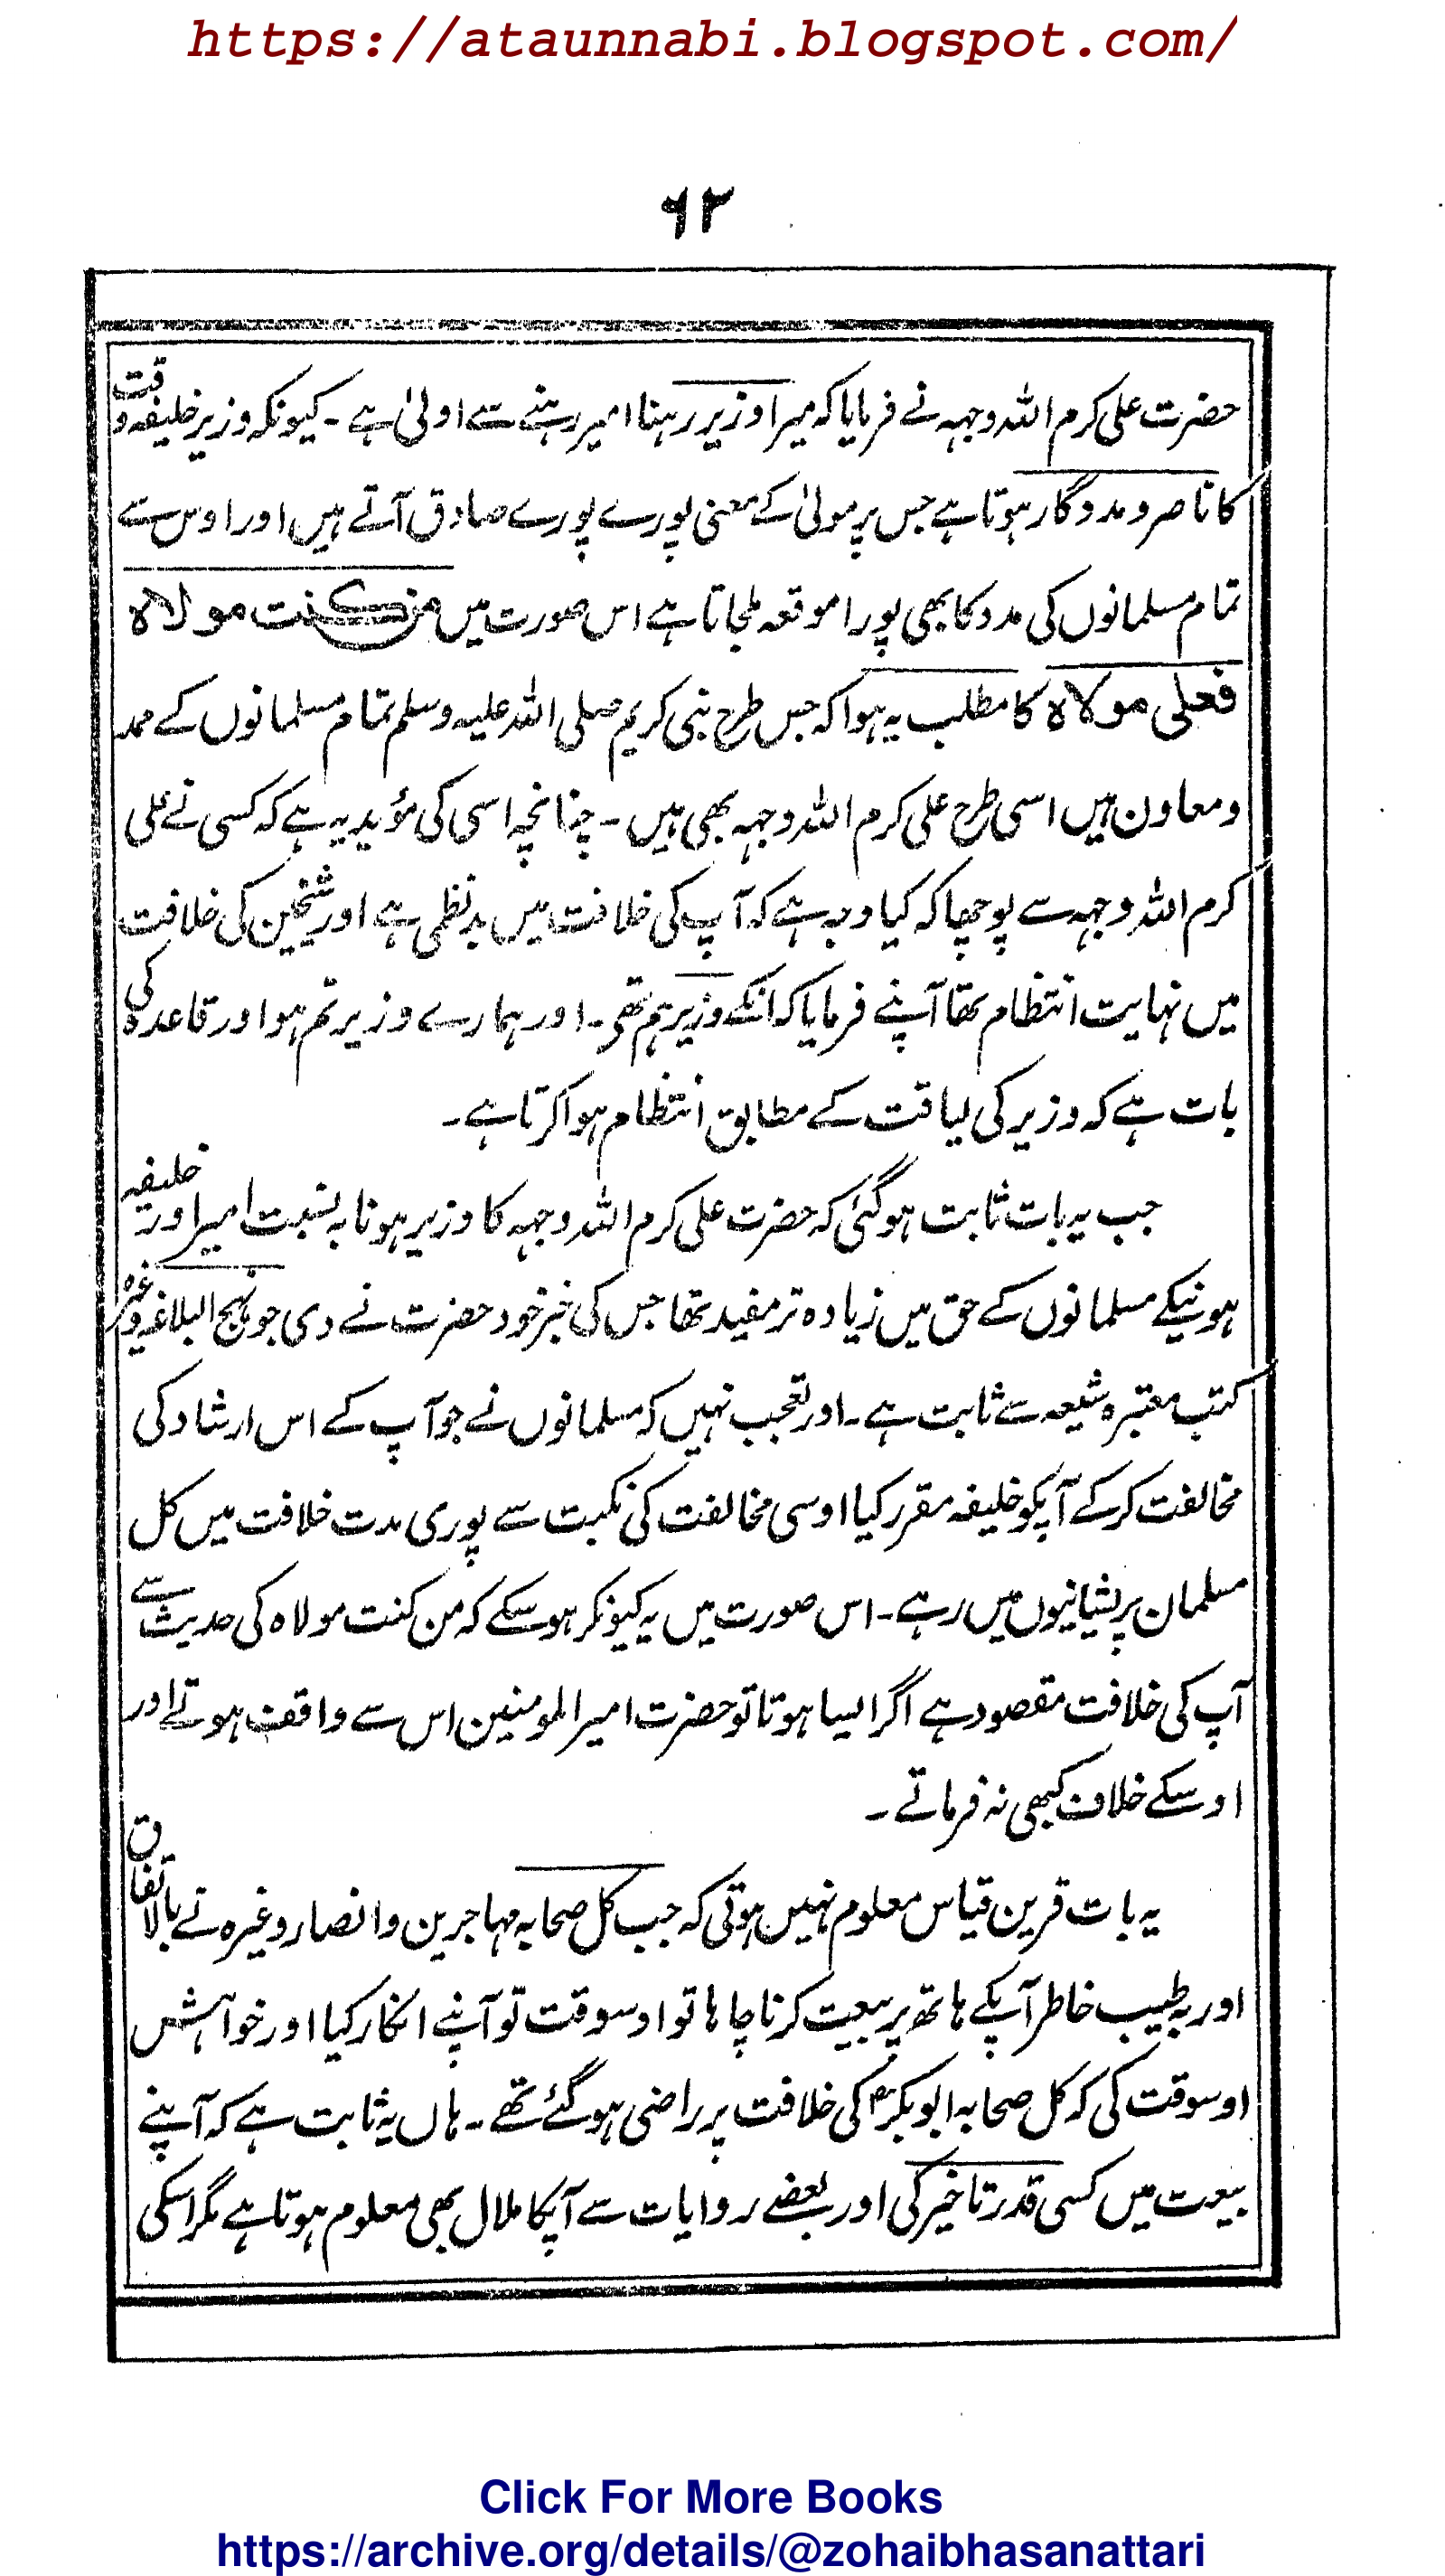 https://ataunnabi.blogspot.com/
۶۲
حضرت علی کرم اللہ وجہہ نے فرمایا کہ میرا وزیر رہنا امیر رہنے سے اولیٰ ہے ۔ کیونکہ وزیر خلیفہ وقت
کا ناصر و مددگار ہوتا ہے جس پر مولیٰ کے معنی پورے پورے صادق آتے ہیں اور اوس سے
تمام مسلمانوں کی مدد کا بھی پورا موقعہ ملجاتا ہے اس صورت میں من کنت مولاہ
فعلی مولاہ کا مطلب یہ ہوا کہ جس طرح نبی کریم صلی اللہ علیہ وسلم تمام مسلمانوں کے ممد
و معاون ہیں اسی طرح علی کرم اللہ وجہہ بھی ہیں ۔ چنانچہ اسی کی مؤید یہ ہے کہ کسی نے علی
کرم اللہ وجہہ سے پوچھا کہ کیا وجہ ہے کہ آپ کی خلافت میں بدنظمی ہے اور شیخین کی خلافت
میں نہایت انتظام تھا آپنے فرمایا کہ انکے وزیر ہم تھی ۔ اور ہمارے وزیر تم ہو اور قاعدہ کی
بات ہے کہ وزیر کی لیاقت کے مطابق انتظام ہوا کرتا ہے ۔
جب یہ بات ثابت ہو گئی کہ حضرت علی کرم اللہ وجہہ کا وزیر ہونا بہ نسبت امیر اور خلیفہ
ہونیکے مسلمانوں کے حق میں زیادہ تر مفید تھا جس کی خبر خود حضرت نے دی جو نہج البلاغہ وغیرہ
کتب معتبرہ شیعہ سے ثابت ہے ۔ اور تعجب نہیں کہ مسلمانوں نے جو آپ کے اس ارشاد کی
مخالفت کر کے آپکو خلیفہ مقرر کیا اوسی مخالفت کی نکبت سے پوری مدت خلافت میں کل
مسلمان پریشانیوں میں رہے ۔ اس صورت میں یہ کیونکر ہو سکے کہ من کنت مولاہ کی حدیث سے
آپ کی خلافت مقصود ہے اگر ایسا ہوتا تو حضرت امیر المومنین اس سے واقف ہوتے اور
اوسکے خلاف کبھی نہ فرماتے ۔
یہ بات قرین قیاس معلوم نہیں ہوتی کہ جب کل صحابہ مہاجرین و انصار وغیرہ نے بالاتفاق
اور بہ طیب خاطر آپکے ہاتھ پر بیعت کرنا چاہا تو اوسوقت تو آپنے انکار کیا اور خواہش
اوسوقت کی کہ کل صحابہ ابوبکرؓ کی خلافت پر راضی ہو گئے تھے ۔ ہاں یہ ثابت ہے کہ آپنے
بیعت میں کسی قدر تاخیر کی اور بعضے روایات سے آپکا ملال بھی معلوم ہوتا ہے مگر اسکی
Click For More Books
https://archive.org/details/@zohaibhasanattari